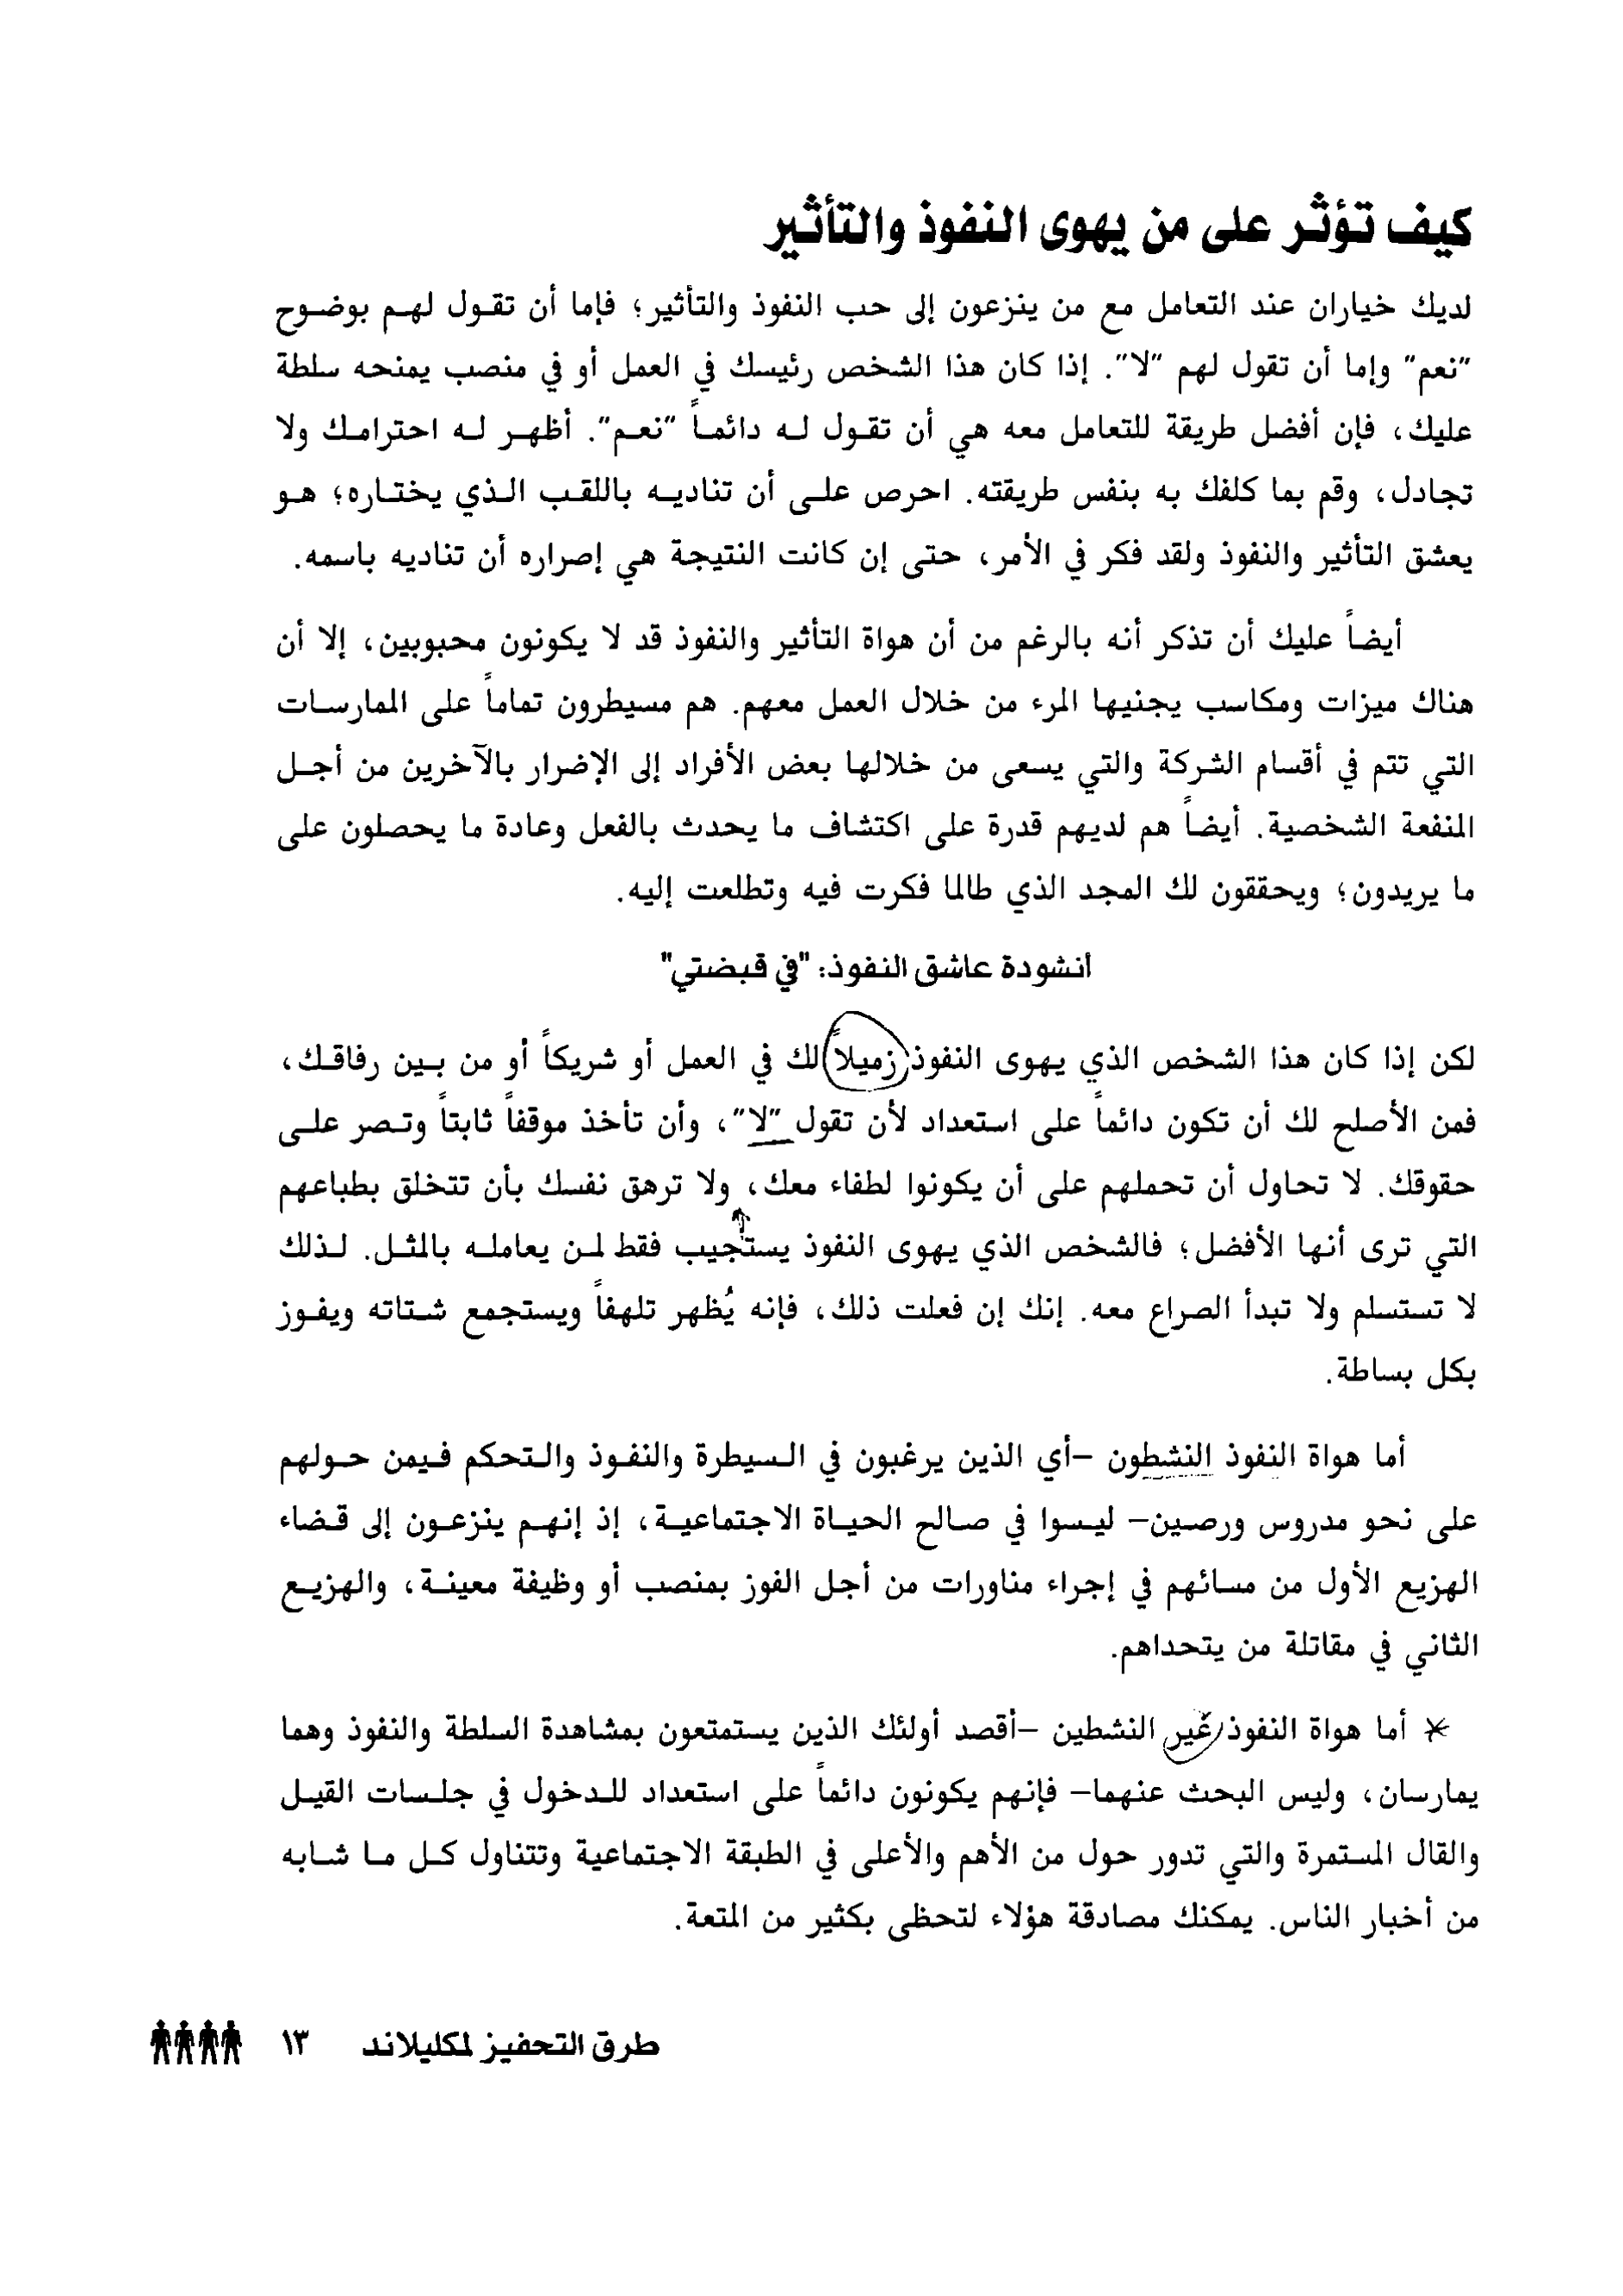 كيف تؤثر على من يهوى النفوذ والتأثير
لديك خياران عند التعامل مع من ينزعون إلى حب النفوذ والتأثير؛ فإما أن تقول لهم بوضوح
"نعم" وإما أن تقول لهم "لا". إذا كان هذا الشخص رئيسك في العمل أو في منصب يمنحه سلطة
عليك، فإن أفضل طريقة للتعامل معه هي أن تقول له دائماً "نعم". أظهر له احترامك ولا
تجادل، وقم بما كلفك به بنفس طريقته. احرص على أن تناديه باللقب الذي يختاره؛ هو
يعشق التأثير والنفوذ ولقد فكر في الأمر، حتى إن كانت النتيجة هي إصراره أن تناديه باسمه.
أيضاً عليك أن تذكر أنه بالرغم من أن هواة التأثير والنفوذ قد لا يكونون محبوبين، إلا أن
هناك ميزات ومكاسب يجنيها المرء من خلال العمل معهم. هم مسيطرون تماماً على الممارسات
التي تتم في أقسام الشركة والتي يسعى من خلالها بعض الأفراد إلى الإضرار بالآخرين من أجل
المنفعة الشخصية. أيضاً هم لديهم قدرة على اكتشاف ما يحدث بالفعل وعادة ما يحصلون على
ما يريدون؛ ويحققون لك المجد الذي طالما فكرت فيه وتطلعت إليه.
أنشودة عاشق النفوذ: "في قبضتي"
لكن إذا كان هذا الشخص الذي يهوى النفوذ زميلاً لك في العمل أو شريكاً أو من بين رفاقك،
فمن الأصلح لك أن تكون دائماً على استعداد لأن تقول "لا"، وأن تأخذ موقفاً ثابتاً وتصر على
حقوقك. لا تحاول أن تحملهم على أن يكونوا لطفاء معك، ولا ترهق نفسك بأن تتخلق بطباعهم
التي ترى أنها الأفضل؛ فالشخص الذي يهوى النفوذ يستجيب فقط لمن يعامله بالمثل. لذلك
لا تستسلم ولا تبدأ الصراع معه. إنك إن فعلت ذلك، فإنه يُظهر تلهفاً ويستجمع شتاته ويفوز
بكل بساطة.
أما هواة النفوذ النشطون -أي الذين يرغبون في السيطرة والنفوذ والتحكم فيمن حولهم
على نحو مدروس ورصين- ليسوا في صالح الحياة الاجتماعية، إذ إنهم ينزعون إلى قضاء
الهزيع الأول من مسائهم في إجراء مناورات من أجل الفوز بمنصب أو وظيفة معينة، والهزيع
الثاني في مقاتلة من يتحداهم.
* أما هواة النفوذ غير النشطين -أقصد أولئك الذين يستمتعون بمشاهدة السلطة والنفوذ وهما
يمارسان، وليس البحث عنهما- فإنهم يكونون دائماً على استعداد للدخول في جلسات القيل
والقال المستمرة والتي تدور حول من الأهم والأعلى في الطبقة الاجتماعية وتتناول كل ما شابه
من أخبار الناس. يمكنك مصادقة هؤلاء لتحظى بكثير من المتعة.
طرق التحفيز لمكليلاند ١٣